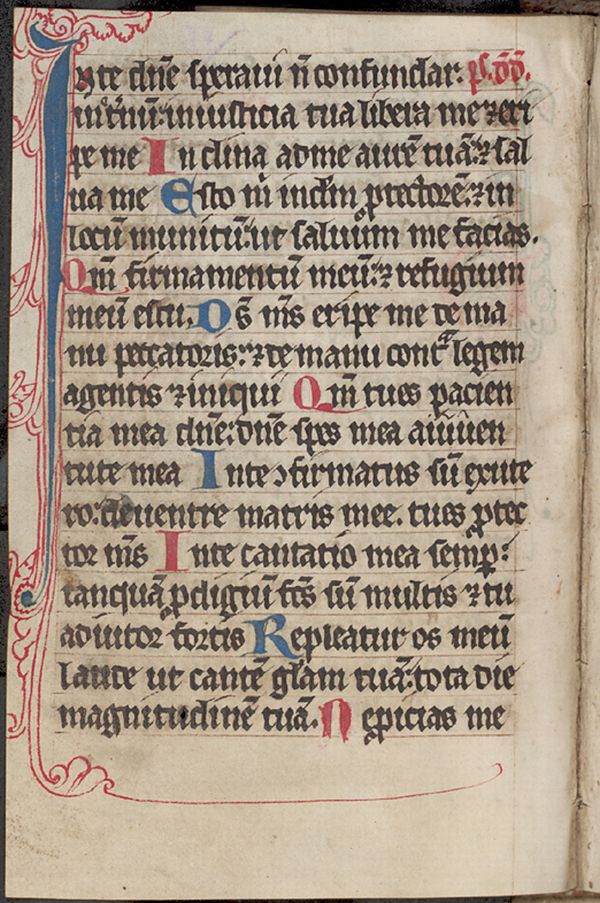 Inte dn̄e speraui n̄ confundar: p̄s. dd̄.
in et̄nū: iniusticia tua libera me ⁊ eri
pe me Inclina adme aurē tuā: ⁊ sal
ua me Esto m̄ indeū ꝓtectorē: ⁊ in
locū munitū: ut saluūm me facias.
Qm̄ firmamentū meū: ⁊ refugium
meū estu. Ds̄ ms̄ eripe me de ma
nu peccatoris: ⁊ de manu contᵃ legem
agentis ⁊ iniqui Qm̄ tues pacien
tia mea dn̄e: dn̄e spes mea aiūuen
tute mea Inte ↄfirmatus sū exute
ro: deuentre matris mee. tues ꝓtec
tor ms̄ Inte cantatio mea semp̄:
tanquā ꝓdigiū fc̄s sū multis ⁊ tu
adiutor fortis Repleatur os meū
laude ut cantē gl̄am tuā: tota die
magnitudinē tuā. Ne ꝓicias me